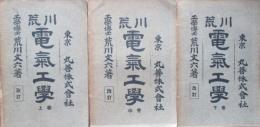 荒川
電氣工學
上卷
工學博士 荒川文六著
改訂
東京 丸善株式會社
荒川
電氣工學
中卷
工學博士 荒川文六著
改訂
東京 丸善株式會社
荒川
電氣工學
下卷
工學博士 荒川文六著
改訂
東京 丸善株式會社